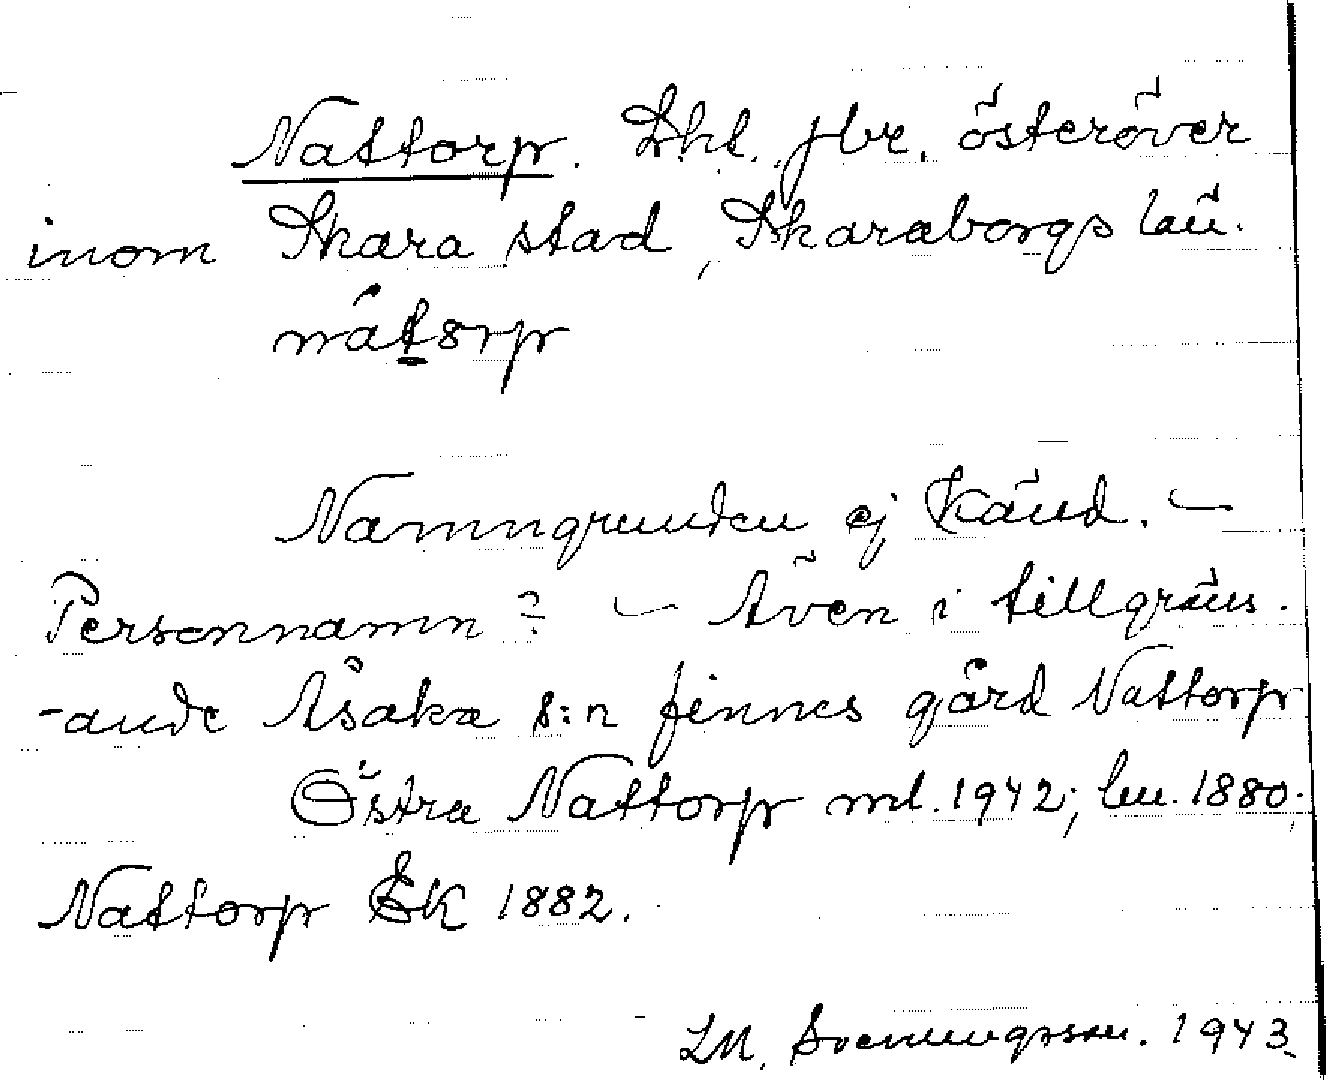 Nattorp. Lht. jbr. österöver
inom Skara stad, Skaraborgs län.
nåtorp
Namngrunden ej känd. –
Personnamn? – Även i tillgräns-
-ande Åsaka s:n finnes gård Nattorp
Östra Nattorp ml. 1942; 1880;
Nattorp EK 1882.
LM. Svenungsson. 1943.